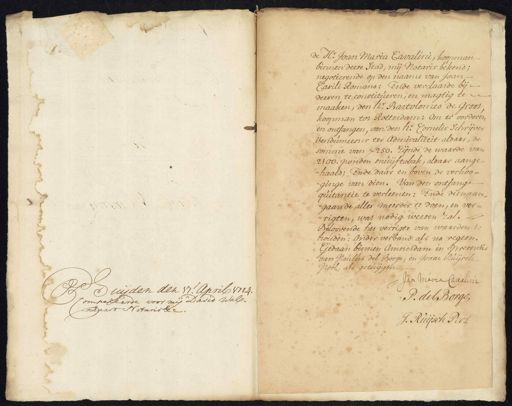 Huijden den 17: April 1724
Compareerde voor mij David Walsch
Not:
de Hr. Joan Maria Cavalini, koopman
binnen dese Stad, mij Notaris bekend;
negotierende op den naame van Joan
Carili Romano; Ende verklaarde bij
deesen te constitueren, en magtig te
maaken, den Hr. Bartolomeus de Groot,
koopman tot Rotterdam: Om te vorderen,
en ontfangen, van den Hr. Cornelis Schrijver
Vendumeester ter Admiraliteit aldaar, de
somme van ƒ250. Zijnde de waarde van
2100. ponden snuijftabak, aldaar aange-
haald; Ende daar en boven de verhoo-
ginge van dien. Van den ontfangst
quitantie te verleenen; Ende desen aan-
gaande alles meerder te doen, en ver-
rigten, wat nodig weesen zal.
Beloovende het verrigte van waarden te
houden; Onder verband als na regten.
Gedaan binnen Amsteldam in presentie
van Paulus del Borgo, en Joan Ruijsch
Pool als getuijgen.
Joan Maria Cavalini
P. del Borgo,
J. Ruijsch Pool